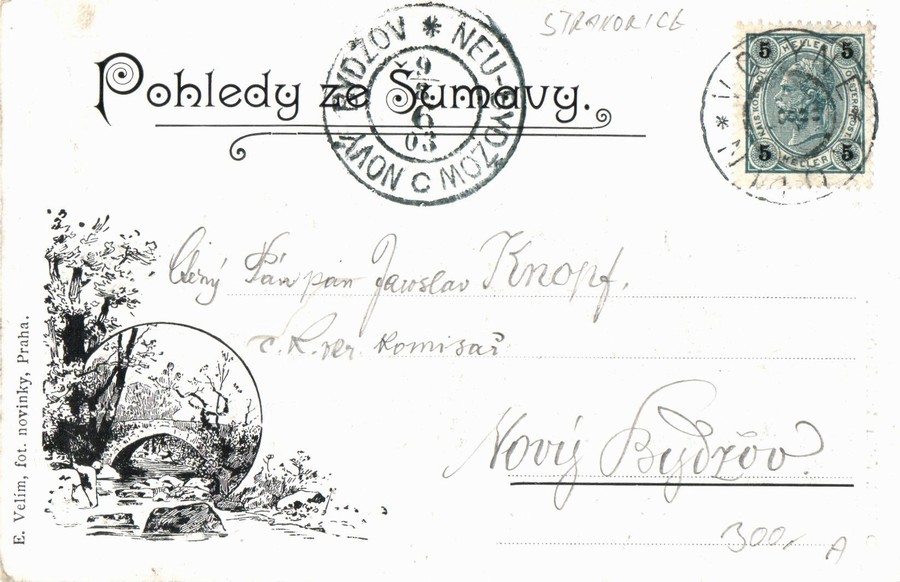 STRAVORICE
Pohledy ze Šumavy.
NEU-BYDŽOV * NOVÝ BYDŽOV C
9
6
03
5 HELLER 5
5 HELLER 5
Ctěný Pán pan Jaroslav Knopf,
c. k. ver komisař
Nový Bydžov.
300,-
A
E. Velim, fot. novinky, Praha.